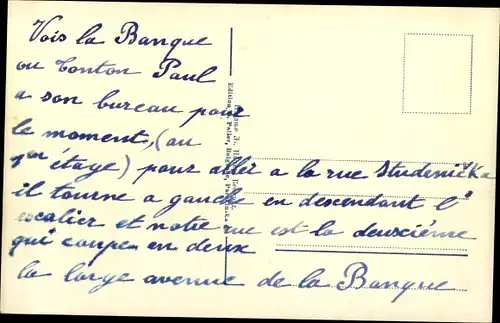 Vois la Banque
ou Tonton Paul
a son bureau pour
le moment, (au
1er étage) pour aller a la rue Studenička
il tourne a gauche en descendant l'
escalier et notre rue est la deuxième
qui coupe en deux
la large avenue de la Banque